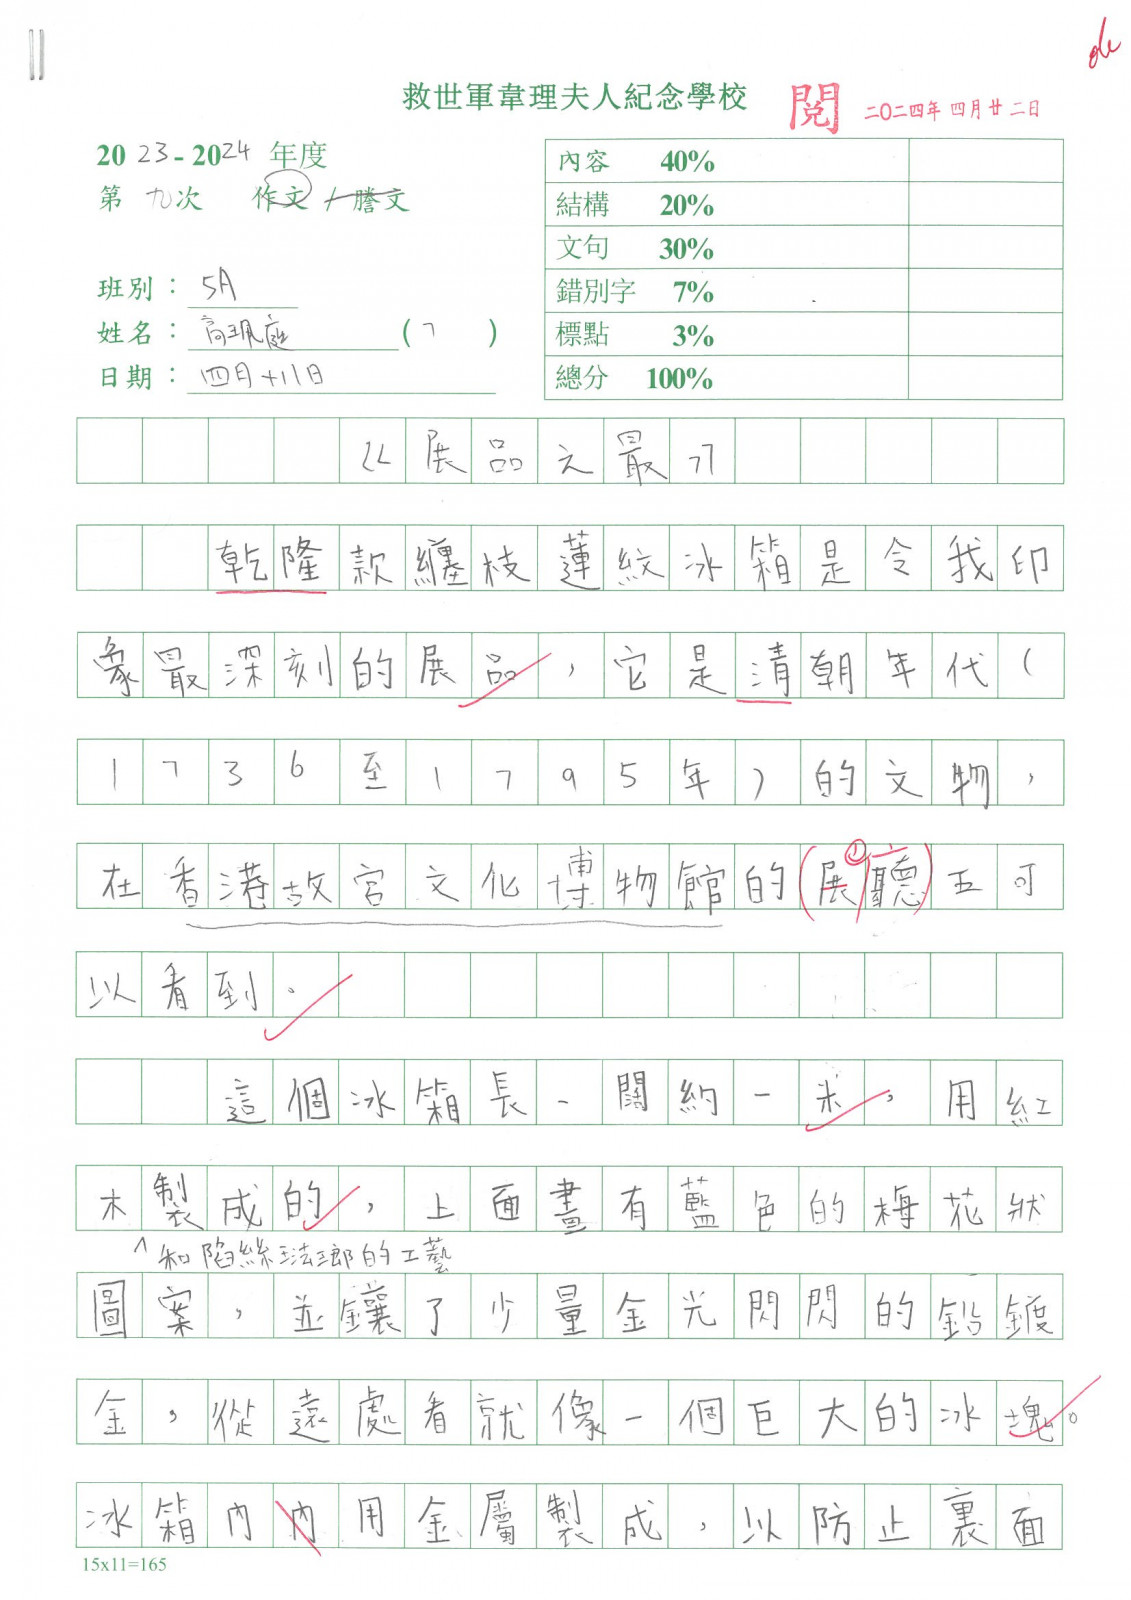 ok
救世軍韋理夫人紀念學校
閱 二〇二四年四月廿二日
2023-2024 年度
第九次 作文/謄文
班別：5A
姓名：高珮庭 (7)
日期：四月十八日
內容 40%
結構 20%
文句 30%
錯別字 7%
標點 3%
總分 100%
《展品之最》
乾隆款纏枝蓮紋冰箱是令我印
象最深刻的展品，它是清朝年代（
1736至1795年）的文物，
在香港故宮文化博物館的(展廳)五可
①
以看到。
這個冰箱長、闊約一米，用紅
木製成的，上面畫有藍色的梅花狀
^和陷絲琺瑯的工藝
圖案，並鑲了少量金光閃閃的鉛鍍
金，從遠處看就像一個巨大的冰塊。
冰箱內內用金屬製成，以防止裏面
15x11=165